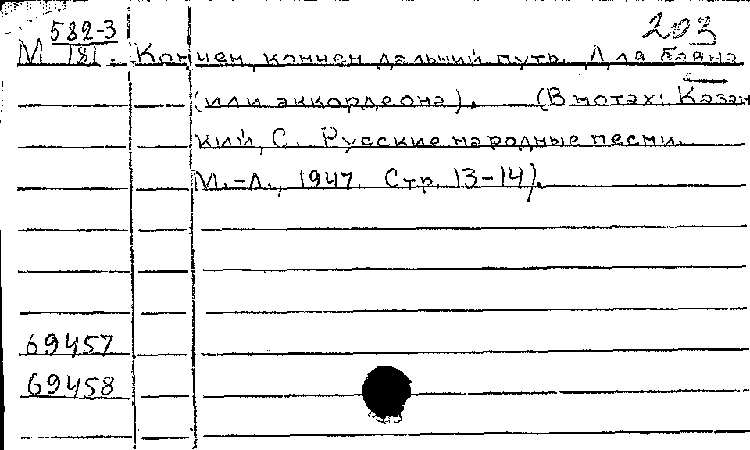 203
М 582-3/181. Кончен, кончен дальний путь. Для баяна
(или аккордеона). (В нотах: Казан
кий, С. Русские народные песни.
М.-Л., 1947. Стр. 13-14).
69457
69458